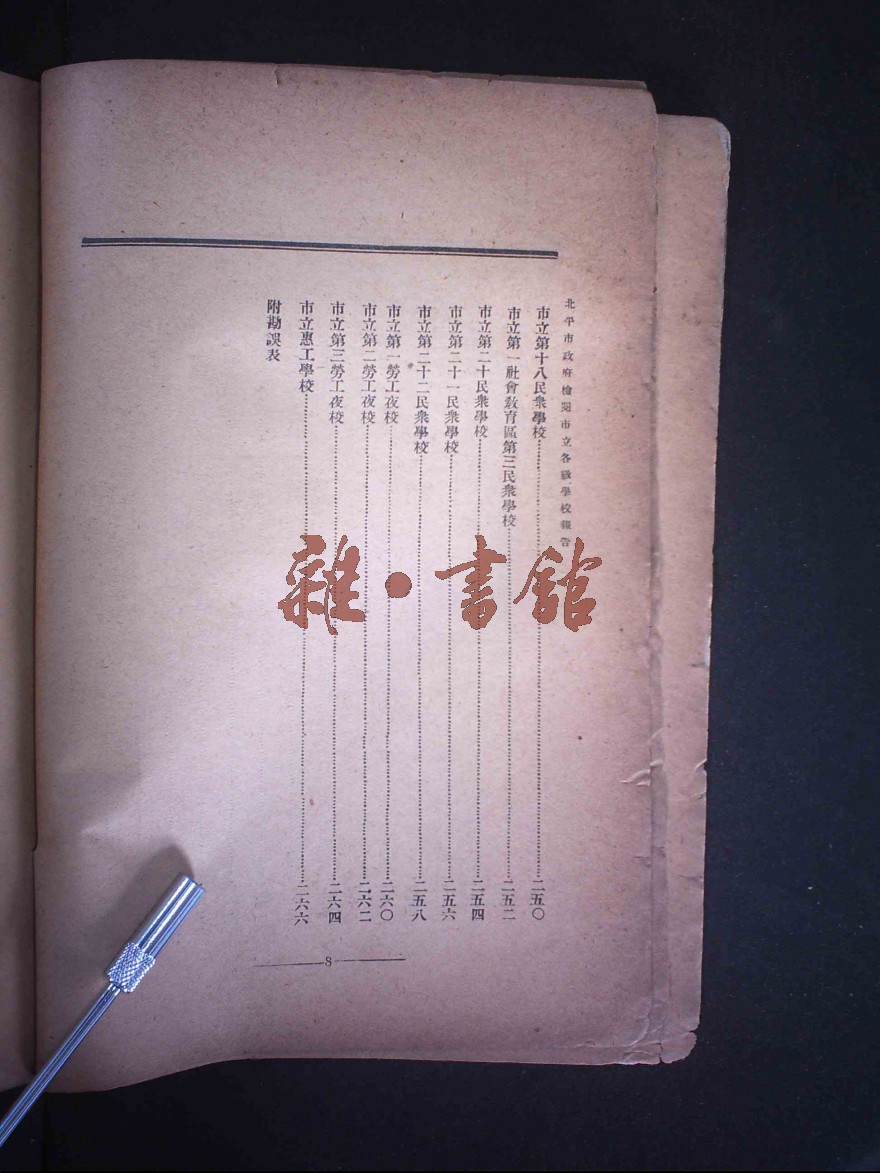 北平市政府檢閱市立各級學校報告
市立第十八民衆學校 二五〇
市立第一社會教育區第三民衆學校 二五二
市立第二十民衆學校 二五四
市立第二十一民衆學校 二五六
市立第二十二民衆學校 二五八
市立第一勞工夜校 二六〇
市立第二勞工夜校 二六二
市立第三勞工夜校 二六四
市立惠工學校 二六六
附勘誤表
8
雜·書館